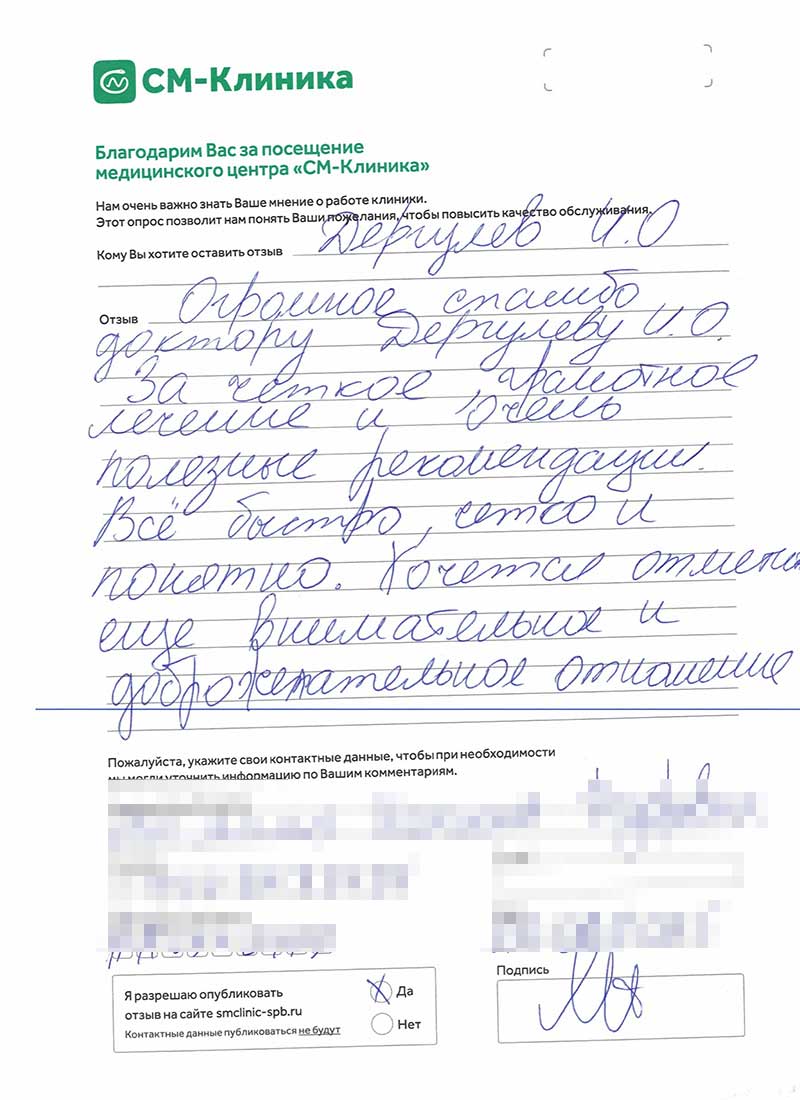 СМ-Клиника
Благодарим Вас за посещение
медицинского центра «СМ-Клиника»
Нам очень важно знать Ваше мнение о работе клиники.
Этот опрос позволит нам понять Ваши пожелания, чтобы повысить качество обслуживания.
Кому Вы хотите оставить отзыв Дергулев И.О
Отзыв Огромное спасибо
доктору Дергулеву И.О.
За четкое, грамотное
лечение и очень
полезные рекомендации.
Всё быстро, четко и
понятно. Хочется отмети
еще внимательное и
доброжелательное отношение
Пожалуйста, укажите свои контактные данные, чтобы при необходимости
мы могли уточнить информацию по Вашим комментариям.
Я разрешаю опубликовать
отзыв на сайте smclinic-spb.ru
Контактные данные публиковаться не будут
Да
Нет
Подпись